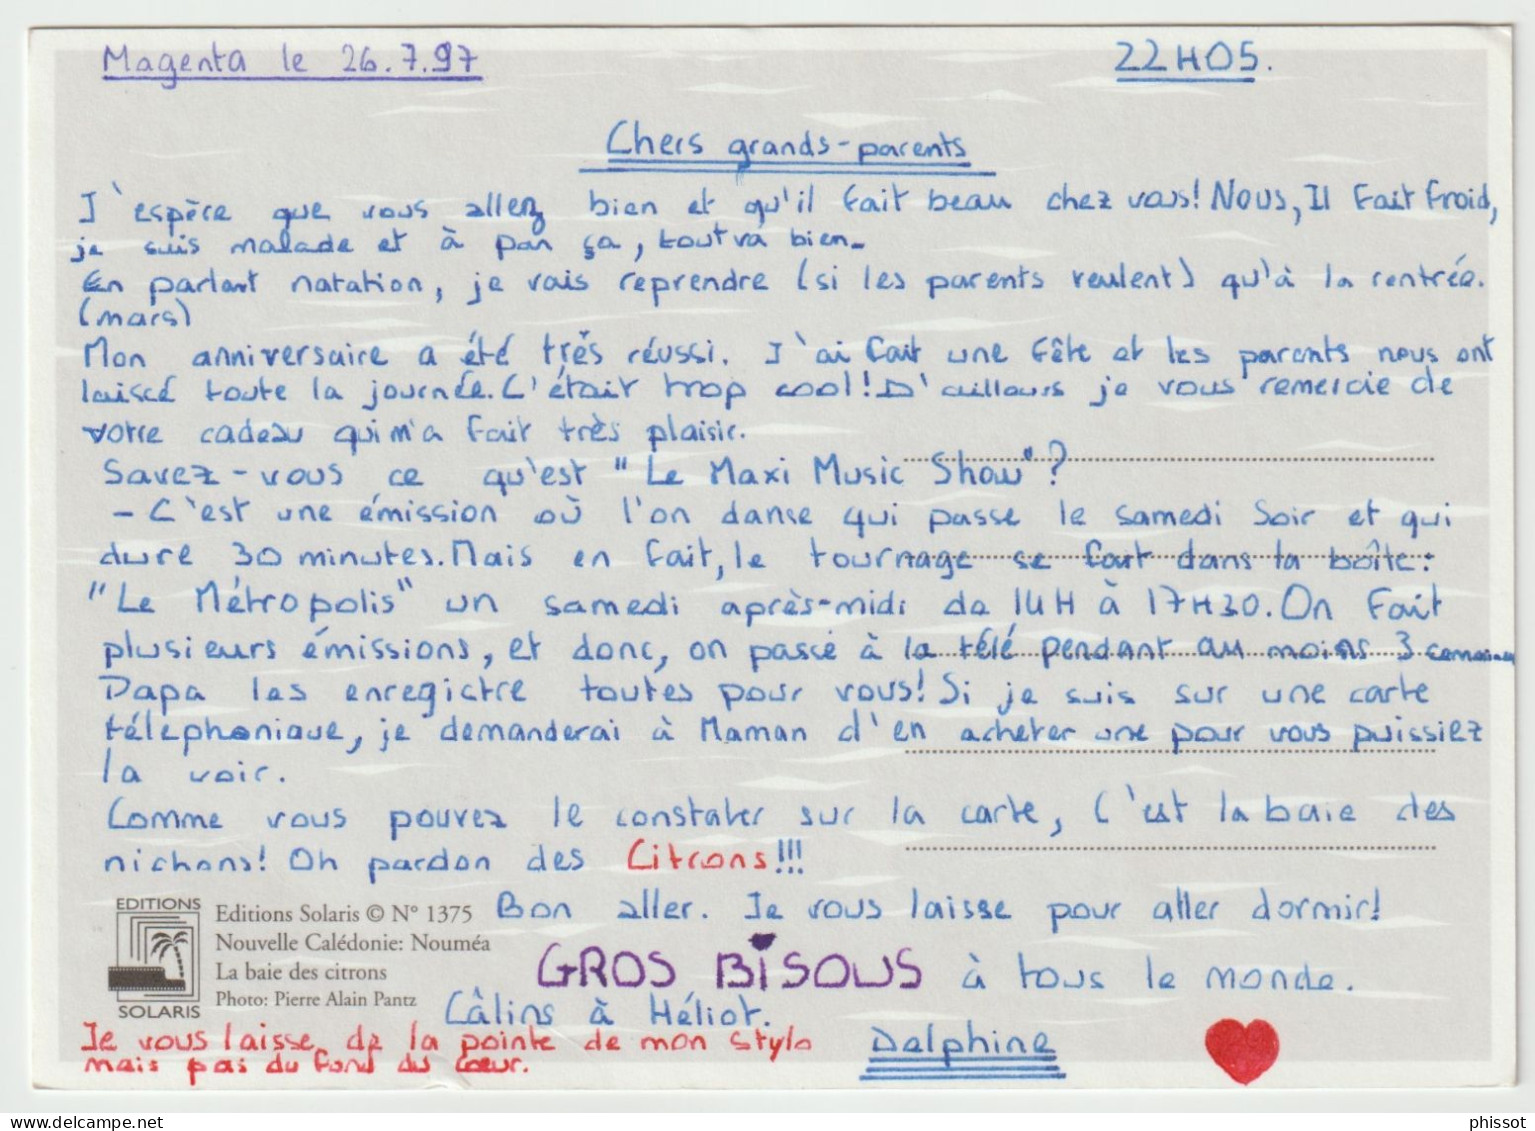 Magenta le 26.7.97 22H05.
Chers grands-parents
J'espère que vous allez bien et qu'il fait beau chez vous! Nous, Il fait froid,
je suis malade et à par ça, tout va bien.
En parlant natation, je vais reprendre (si les parents veulent) qu'à la rentrée.
(mars)
Mon anniversaire a été très réussi. J'ai fait une fête et les parents nous ont
laissé toute la journée. C'était trop cool! D'ailleurs je vous remercie de
votre cadeau qui m'a fait très plaisir.
Savez-vous ce qu'est "Le Maxi Music Show"?
- C'est une émission où l'on danse qui passe le samedi soir et qui
dure 30 minutes. Mais en fait, le tournage se fait dans la boîte:
"Le Métropolis" un samedi après-midi de 14H à 17H30. On fait
plusieurs émissions, et donc, on passe à la télé pendant au moins 3 semaines
Papa les enregistre toutes pour vous! Si je suis sur une carte
téléphonique, je demanderai à Maman d'en acheter une pour vous puissiez
la voir.
Comme vous pouvez le constater sur la carte, C'est la baie des
nichons! Oh pardon des Citrons!!!
Bon aller. Je vous laisse pour aller dormir!
GROS BISOUS à tous le monde.
Câlins à Héliot.
Delphine
Je vous laisse de la pointe de mon stylo
mais pas du fond du cœur.
EDITIONS
SOLARIS
Editions Solaris © N° 1375
Nouvelle Calédonie: Nouméa
La baie des citrons
Photo: Pierre Alain Pantz
delcampe.net
phissot